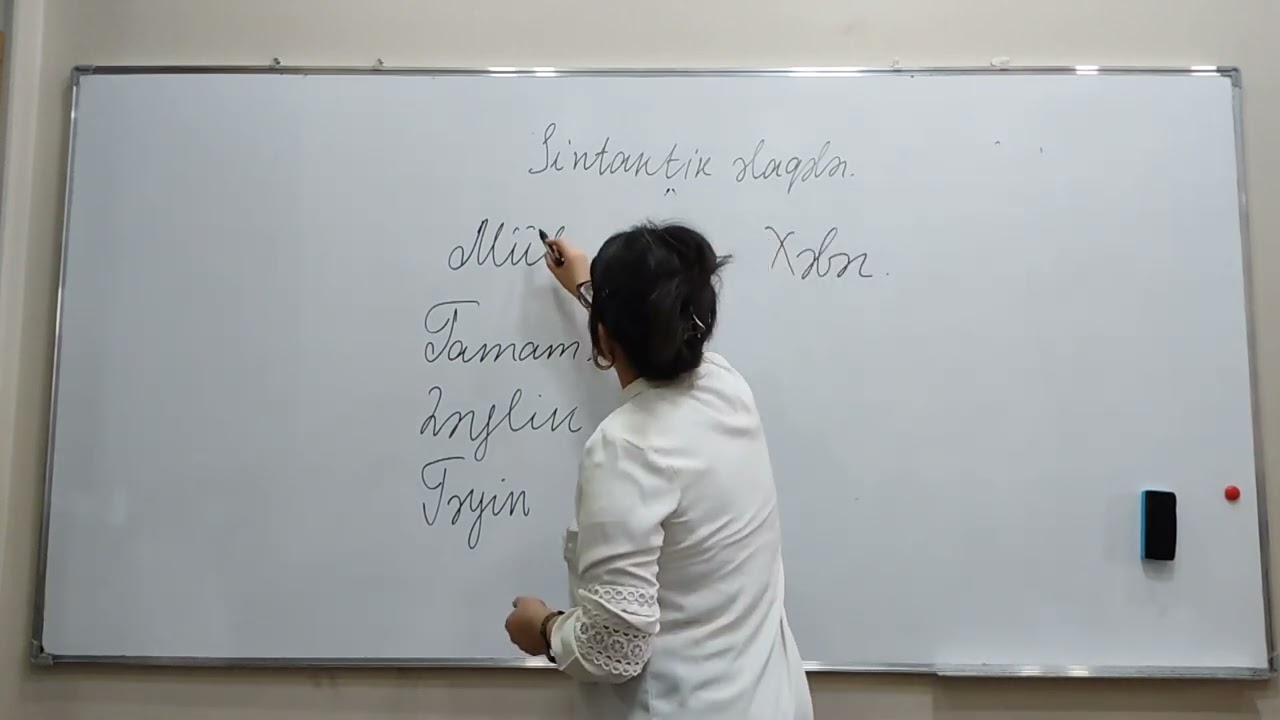 Sintaktik əlaqələr.
Müb Xəbər.
Tamam.
Zərflik
Təyin